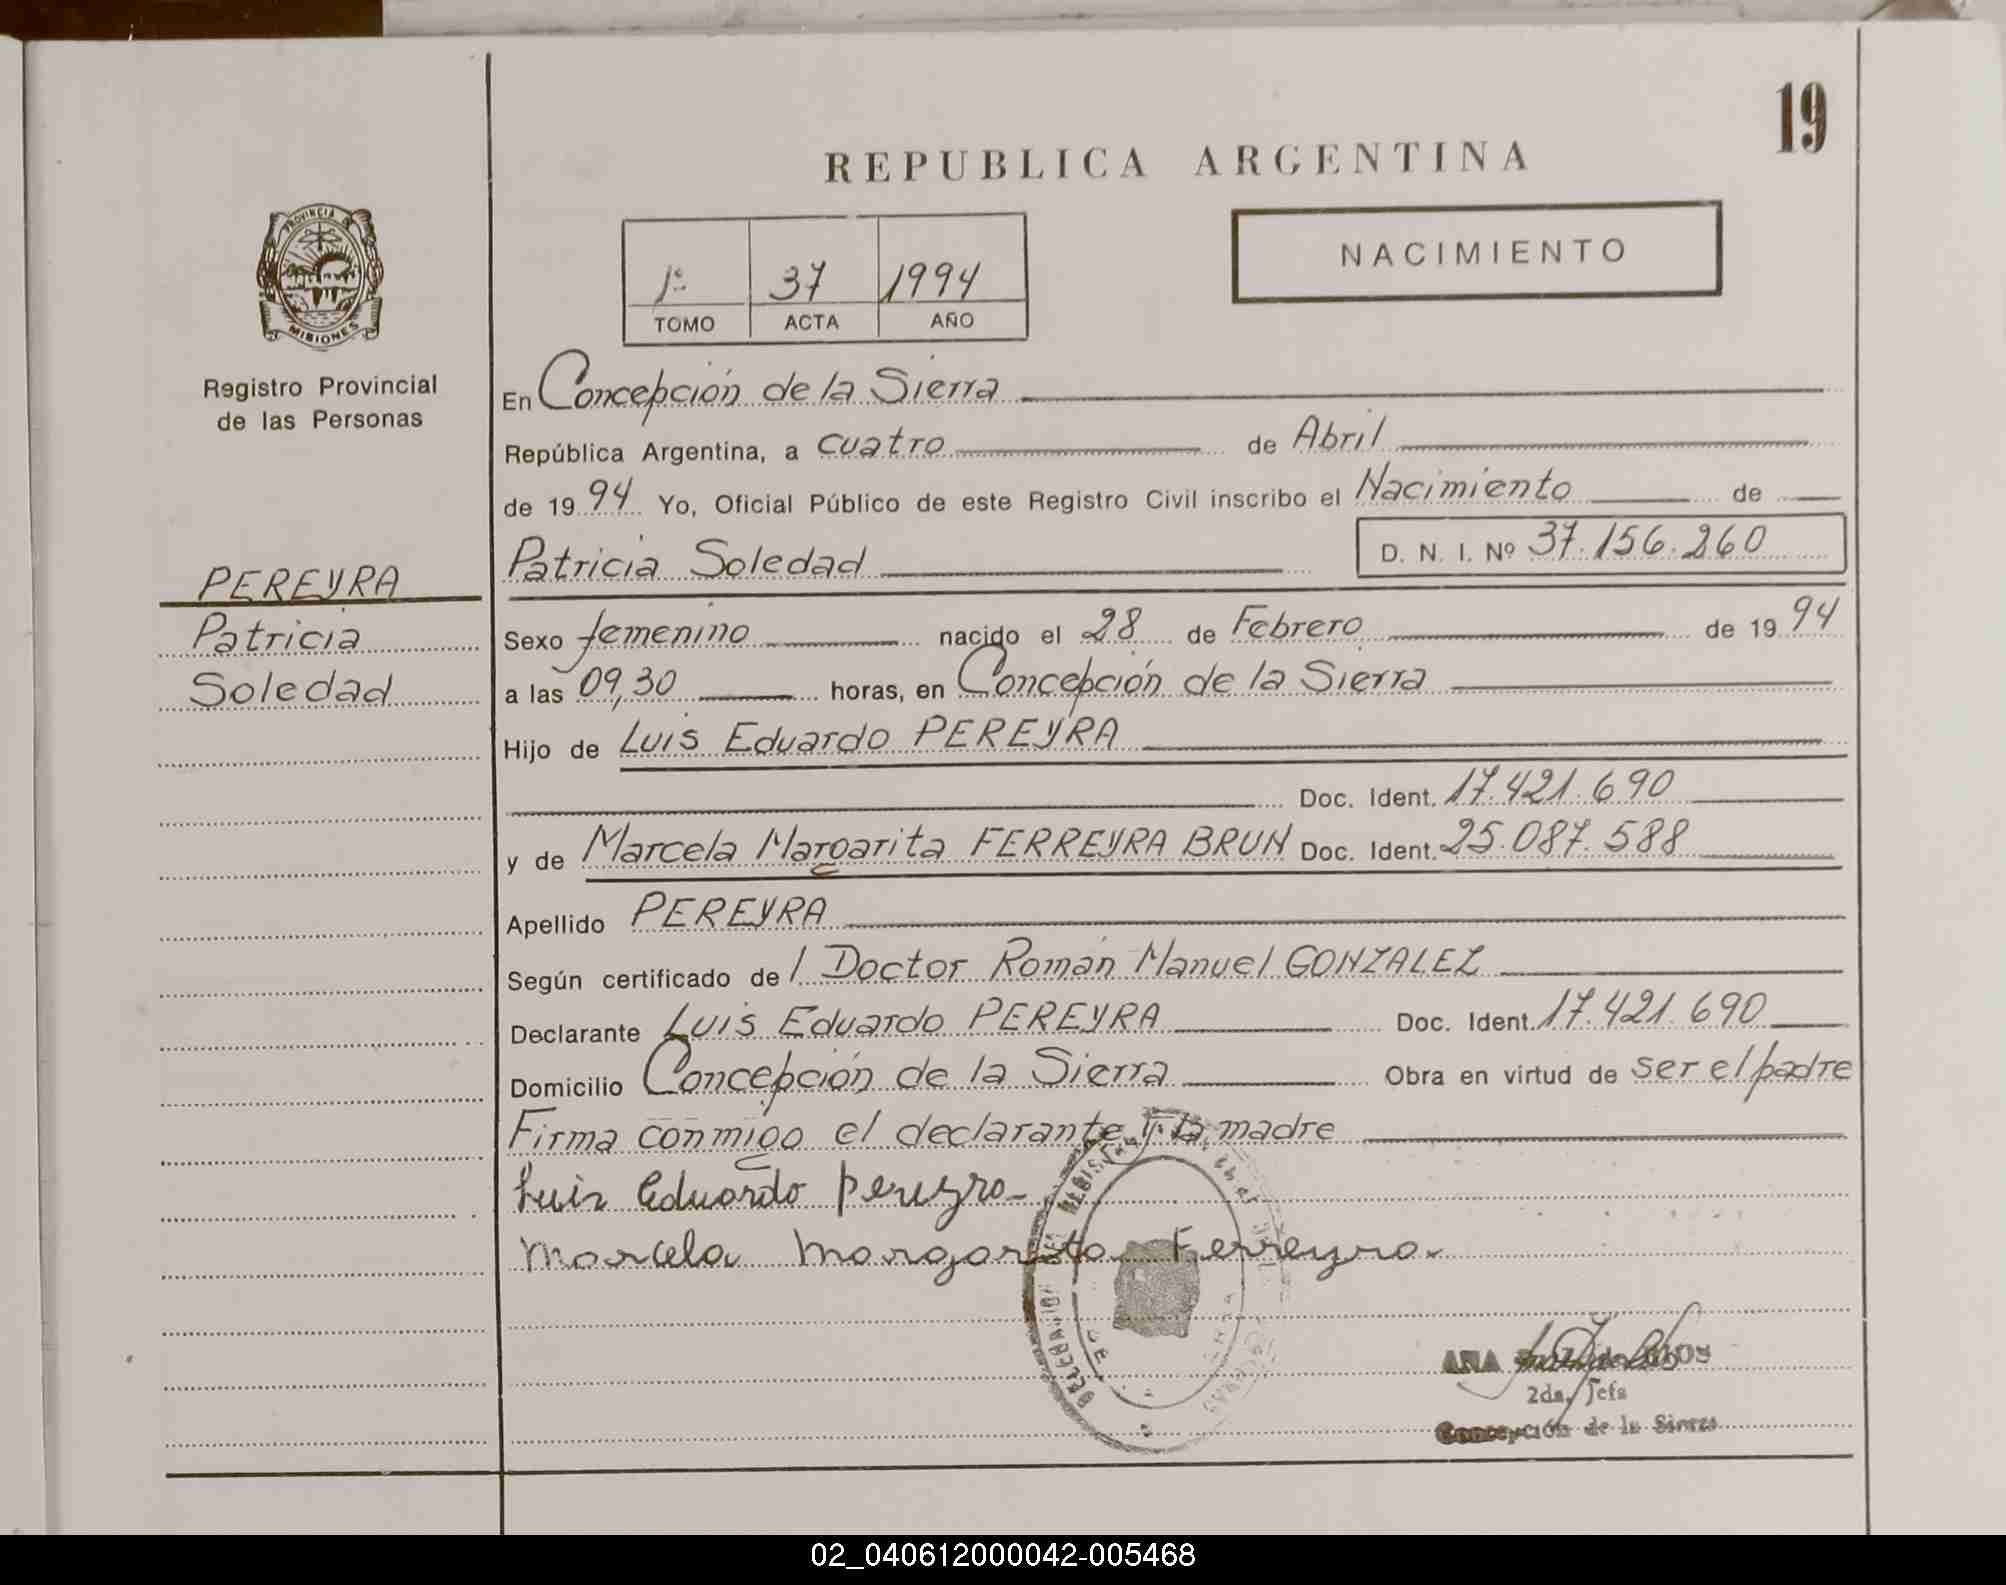 19
REPUBLICA ARGENTINA
NACIMIENTO
1º 37 1994
TOMO ACTA AÑO
PROVINCIA DE
MISIONES
Registro Provincial
de las Personas
PEREYRA
Patricia
Soledad
En Concepción de la Sierra
República Argentina, a cuatro de Abril
de 1994 Yo, Oficial Público de este Registro Civil inscribo el Nacimiento de
Patricia Soledad D. N. I. Nº 37.156.260
Sexo femenino nacido el 28 de Febrero de 1994
a las 09,30 horas, en Concepción de la Sierra
Hijo de Luis Eduardo PEREYRA
Doc. Ident. 17.421.690
y de Marcela Margarita FERREYRA BRUN Doc. Ident. 25.087.588
Apellido PEREYRA
Según certificado del Doctor Román Manuel GONZALEZ
Declarante Luis Eduardo PEREYRA Doc. Ident. 17.421.690
Domicilio Concepción de la Sierra Obra en virtud de ser el padre
Firma conmigo el declarante y la madre
Luis Eduardo pereyra
Marcela Margarita Ferreyra.
ANA
2da. Jefa
Concepción de la Sierra
02_040612000042-005468